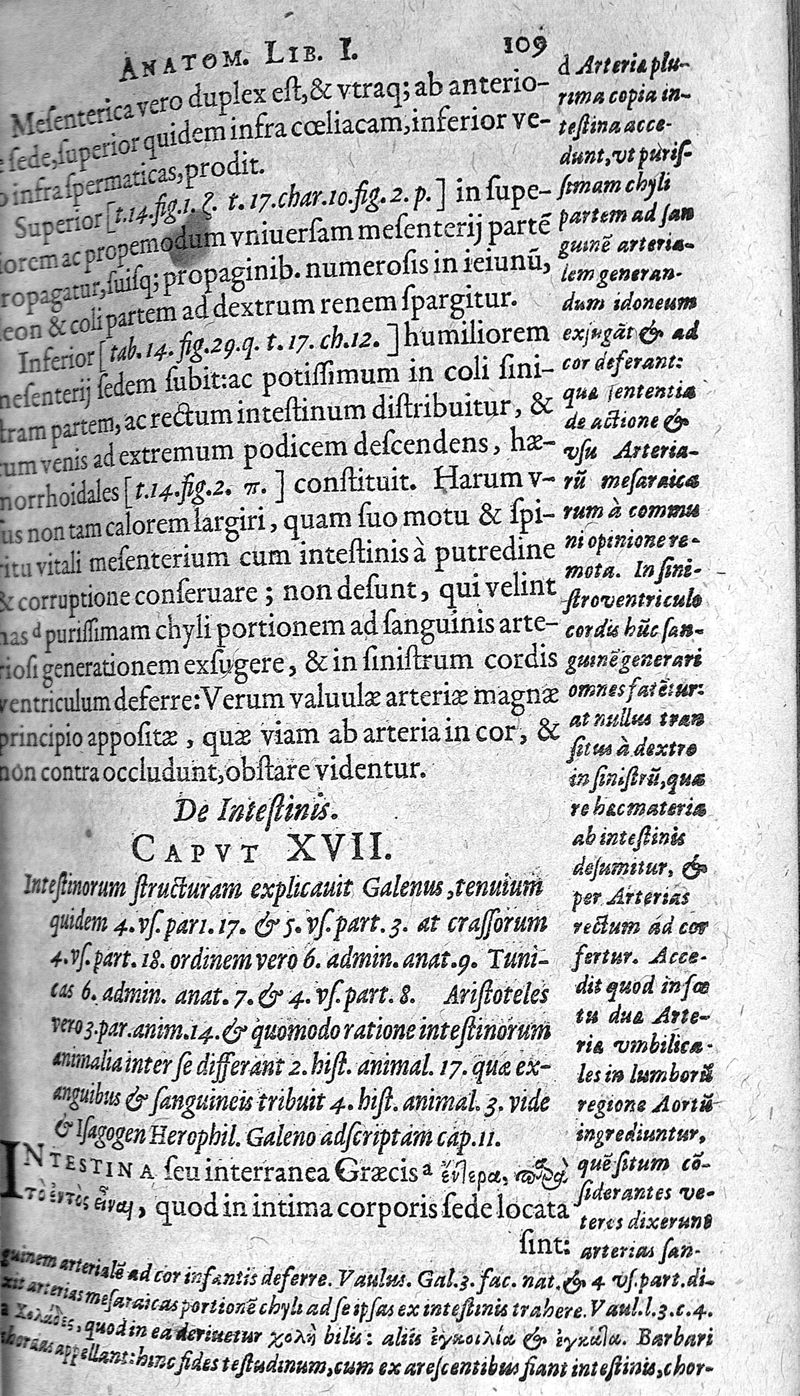 ANATOM. LIB. I. 109
Mesenterica vero duplex est, & vtraq; ab anterio-
sede, superior quidem infra cœliacam, inferior ve-
infra spermaticas, prodit.
Superior [t.14.fig.1. ζ. t.17.char.10.fig.2.p.] in supe-
iorem ac propemodum vniuersam mesenterij partē
ropagatur, suisq; propaginib. numerosis in ieiunū,
leon & coli partem ad dextrum renem spargitur.
Inferior [tab.14.fig.29.q. t.17.ch.12.] humiliorem
mesenterij sedem subit: ac potissimum in coli sini-
tram partem, ac rectum intestinum distribuitur, &
cum venis ad extremum podicem descendens, hæ-
morrhoidales [t.14.fig.2. π.] constituit. Harum v-
sus non tam calorem largiri, quam suo motu & spi-
ritu vitali mesenterium cum intestinis à putredine
& corruptione conseruare; non desunt, qui velint
has d purissimam chyli portionem ad sanguinis arte-
riosi generationem exsugere, & in sinistrum cordis
ventriculum deferre: Verum valuulæ arteriæ magnæ
principio appositæ, quæ viam ab arteria in cor, &
non contra occludunt, obstare videntur.
De Intestinis.
CAPVT XVII.
Intestinorum structuram explicauit Galenus, tenuium
quidem 4. vs. par1. 17. & 5. vs. part. 3. at crassorum
4. vs. part. 18. ordinem vero 6. admin. anat. 9. Tuni-
cas 6. admin. anat. 7. & 4. vs. part. 8. Aristoteles
vero 3. par. anim. 14. & quomodo ratione intestinorum
animalia inter se differant 2. hist. animal. 17. quæ ex-
anguibus & sanguineis tribuit 4. hist. animal. 3. vide
& Isagogen Herophil. Galeno adscriptam cap. 11.
INTESTINA seu interranea Græcis a ἔντερα, παρὰ
τὸ ἐντὸς εἶναι, quod in intima corporis sede locata
sint:
d Arteriæ plu-
rima copia in-
testina acce-
dunt, vt puris-
simam chyli
partem ad san
guinē arteria-
lem generan-
dum idoneum
exjugāt & ad
cor deferant:
quæ sententia
de actione &
vsu Arteria-
rū mesaraica
rum à commu
ni opinione re-
mota. In sini-
stro ventriculo
cordis hūc san-
guinē generari
omnes fatētur:
at nullus tran
situs à dextro
in sinistrū, qua
re hæc materia
ab intestinis
desumitur, &
per Arterias
rectum ad cor
fertur. Acce-
dit quod in fœ
tu duæ Arte-
riæ vmbilica-
les in lumborū
regione Aortā
ingrediuntur,
quē situm cō-
siderantes ve-
teres dixerunt
arterias san-
guinem arterialē ad cor infantis deferre. Vaulus. Gal. 3. fac. nat. & 4 vs. part. di-
xit arterias mesaraicas portionē chyli ad se ipsas ex intestinis trahere. Vaul. l. 3. c. 4.
a Χολάδες, quod in ea deriuetur χολὴ bilis: aliis ἐγκοιλία & ἔγκατα. Barbari
chordas appellant: hinc fides testudinum, cum exarescentibus fiant intestinis, chor-